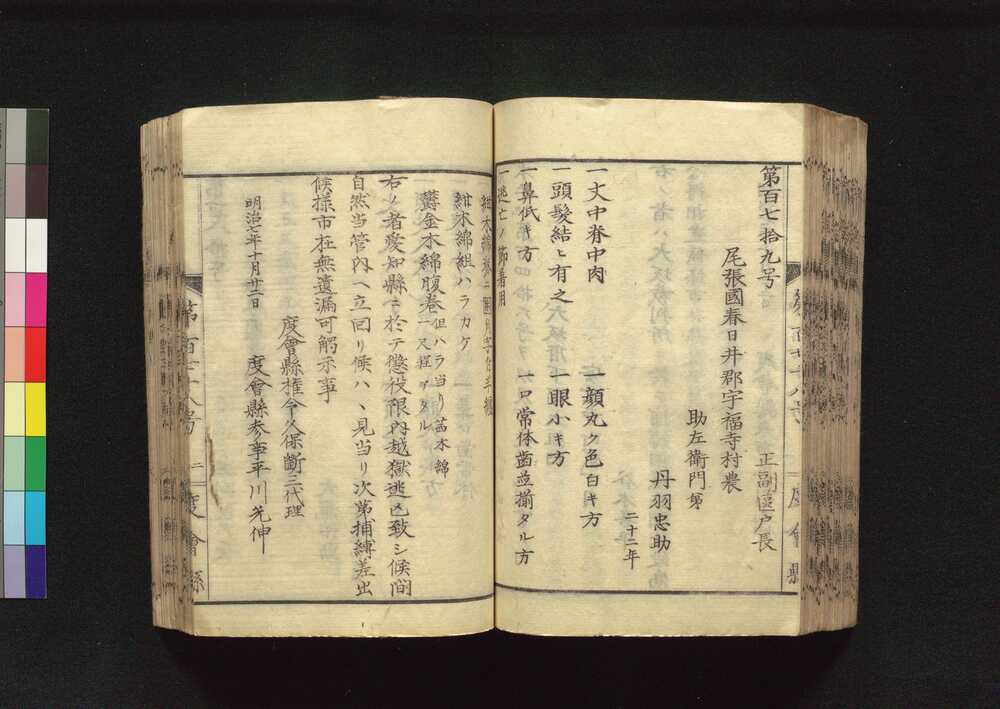 第百七拾九号
正副區戸長
尾張國春日井郡宇福寺村農
助左衛門弟
丹羽忠助
二十二年
一丈中脊中肉 一顔丸ク色白キ方
一頭髪結ヒ有之 一眼小キ方
一鼻低キ方 一口常体歯並揃タル方
一逃亡ノ節着用
紺木綿組ハラカケ
一欝金木綿腹巻 但ハラ当リ茜木綿
右ノ者愛知縣ニ於テ懲役限内越獄逃亡致シ候間
自然当管内ヘ立回リ候ハヽ見当リ次第捕縛差出
候様市在無遺漏可觸示事
明治七年十月廿二日
度會縣権令久保断三代理
度會縣参事平川光伸
第百七十八号
二
度會縣
度會縣